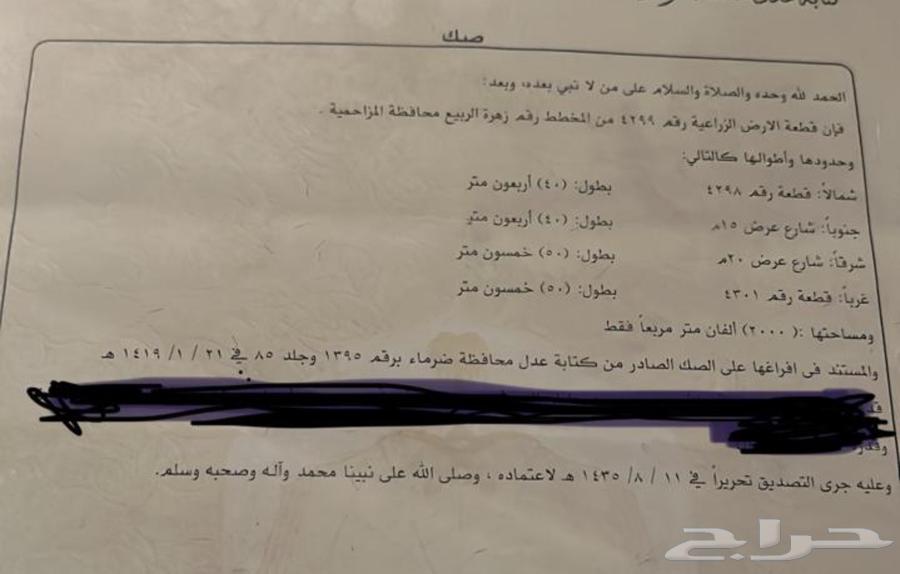 صك
الحمد لله وحده والصلاة والسلام على من لا نبي بعده، وبعد:
فإن قطعة الارض الزراعية رقم ٤٢٩٩ من المخطط رقم زهرة الربيع محافظة المزاحمية .
وحدودها وأطوالها كالتالي:
شمالاً: قطعة رقم ٤٢٩٨ بطول: (٤٠) أربعون متر
جنوباً: شارع عرض ١٥م بطول: (٤٠) أربعون متر
شرقاً: شارع عرض ٢٠م بطول: (٥٠) خمسون متر
غرباً: قطعة رقم ٤٣٠١ بطول: (٥٠) خمسون متر
ومساحتها :( ٢٠٠٠) ألفان متر مربعاً فقط
والمستند في افراغها على الصك الصادر من كتابة عدل محافظة ضرماء برقم ١٣٩٥ وجلد ٨٥ في ٢١ / ١ / ١٤١٩ هـ
وعليه جرى التصديق تحريراً في ١١ / ٨ / ١٤٣٥ هـ لاعتماده ، وصلى الله على نبينا محمد وآله وصحبه وسلم.
حراج